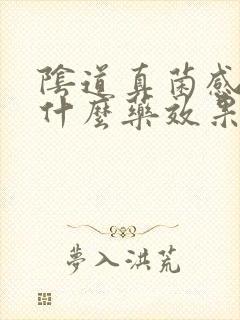 陰道真菌感
什麼藥效果
夢入洪荒